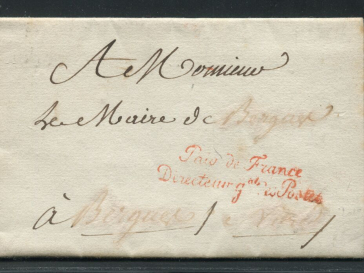 A Monsieur
Le Maire de Bergues
Paid de France
Directeur g^al des Postes
à Bergues / Nord /